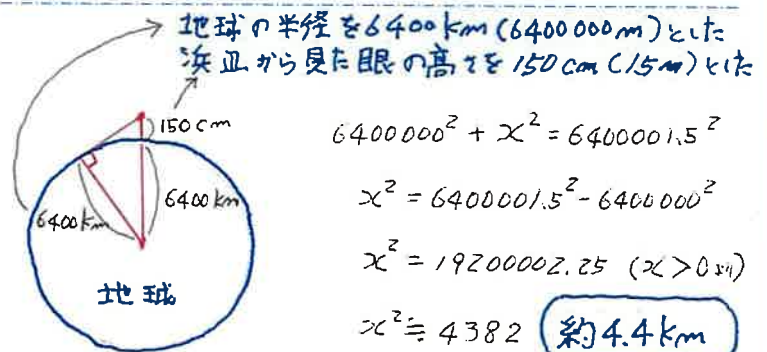 地球の半径を6400km(6400000m)とした
浜辺から見た眼の高さを150cm(15m)とした
150cm
6400km
6400km
地球
6400000² + x² = 6400001.5²
x² = 6400001.5² - 6400000²
x² = 19200002.25 (x>0より)
x² ≒ 4382
約4.4km